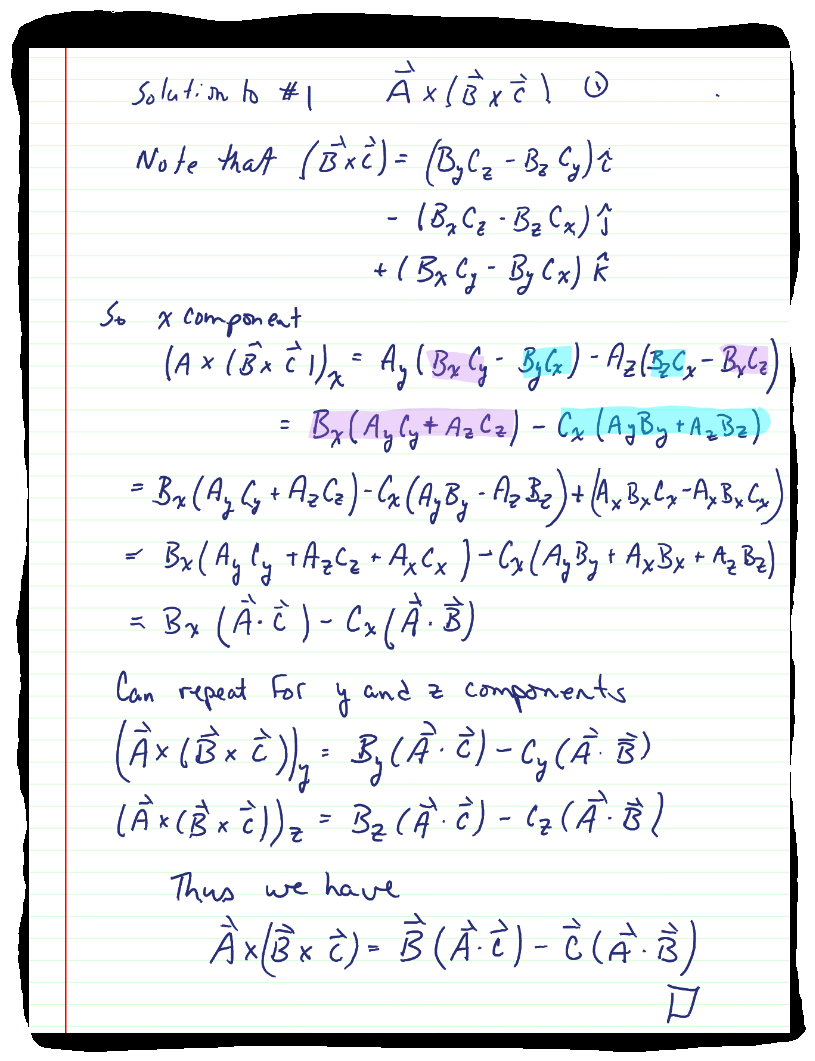 Solution to #1 A⃗ × (B⃗ × C⃗) ①
Note that (B⃗ × C⃗) = (B_y C_z - B_z C_y) î
- (B_x C_z - B_z C_x) ĵ
+ (B_x C_y - B_y C_x) k̂
So x component
(A × (B⃗ × C⃗))_x = A_y (B_x C_y - B_y C_x) - A_z (B_z C_x - B_x C_z)
= B_x (A_y C_y + A_z C_z) - C_x (A_y B_y + A_z B_z)
= B_x (A_y C_y + A_z C_z) - C_x (A_y B_y - A_z B_z) + (A_x B_x C_x - A_x B_x C_x)
= B_x (A_y C_y + A_z C_z + A_x C_x) - C_x (A_y B_y + A_x B_x + A_z B_z)
= B_x (A⃗ · C⃗) - C_x (A⃗ · B⃗)
Can repeat for y and z components
(A⃗ × (B⃗ × C⃗))_y = B_y (A⃗ · C⃗) - C_y (A⃗ · B⃗)
(A⃗ × (B⃗ × C⃗))_z = B_z (A⃗ · C⃗) - C_z (A⃗ · B⃗)
Thus we have
A⃗ × (B⃗ × C⃗) = B⃗ (A⃗ · C⃗) - C⃗ (A⃗ · B⃗)
□